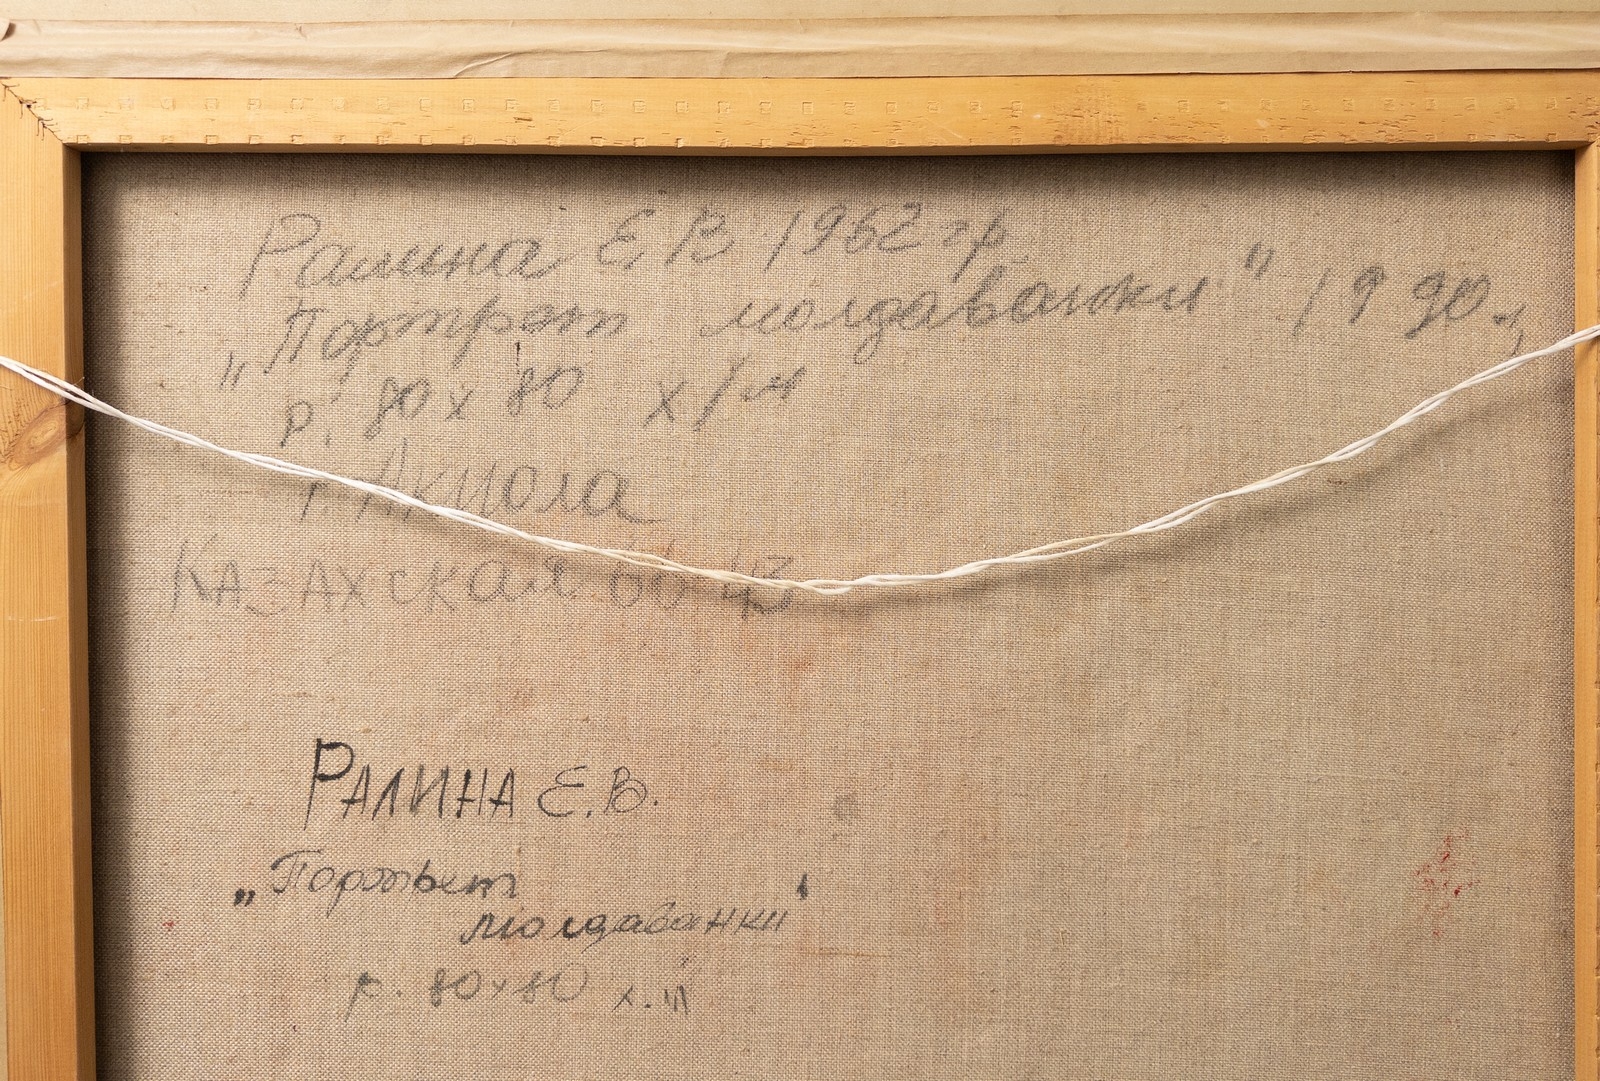 Ралина Е В 1962 гр
„Портрет молдаванки" 1990 г,
р. 80 х 80 х/м
г. Акмола
Казахская 43
РАЛИНА Е.В.
„Портрет
молдаванки"
р. 80х80 х.м